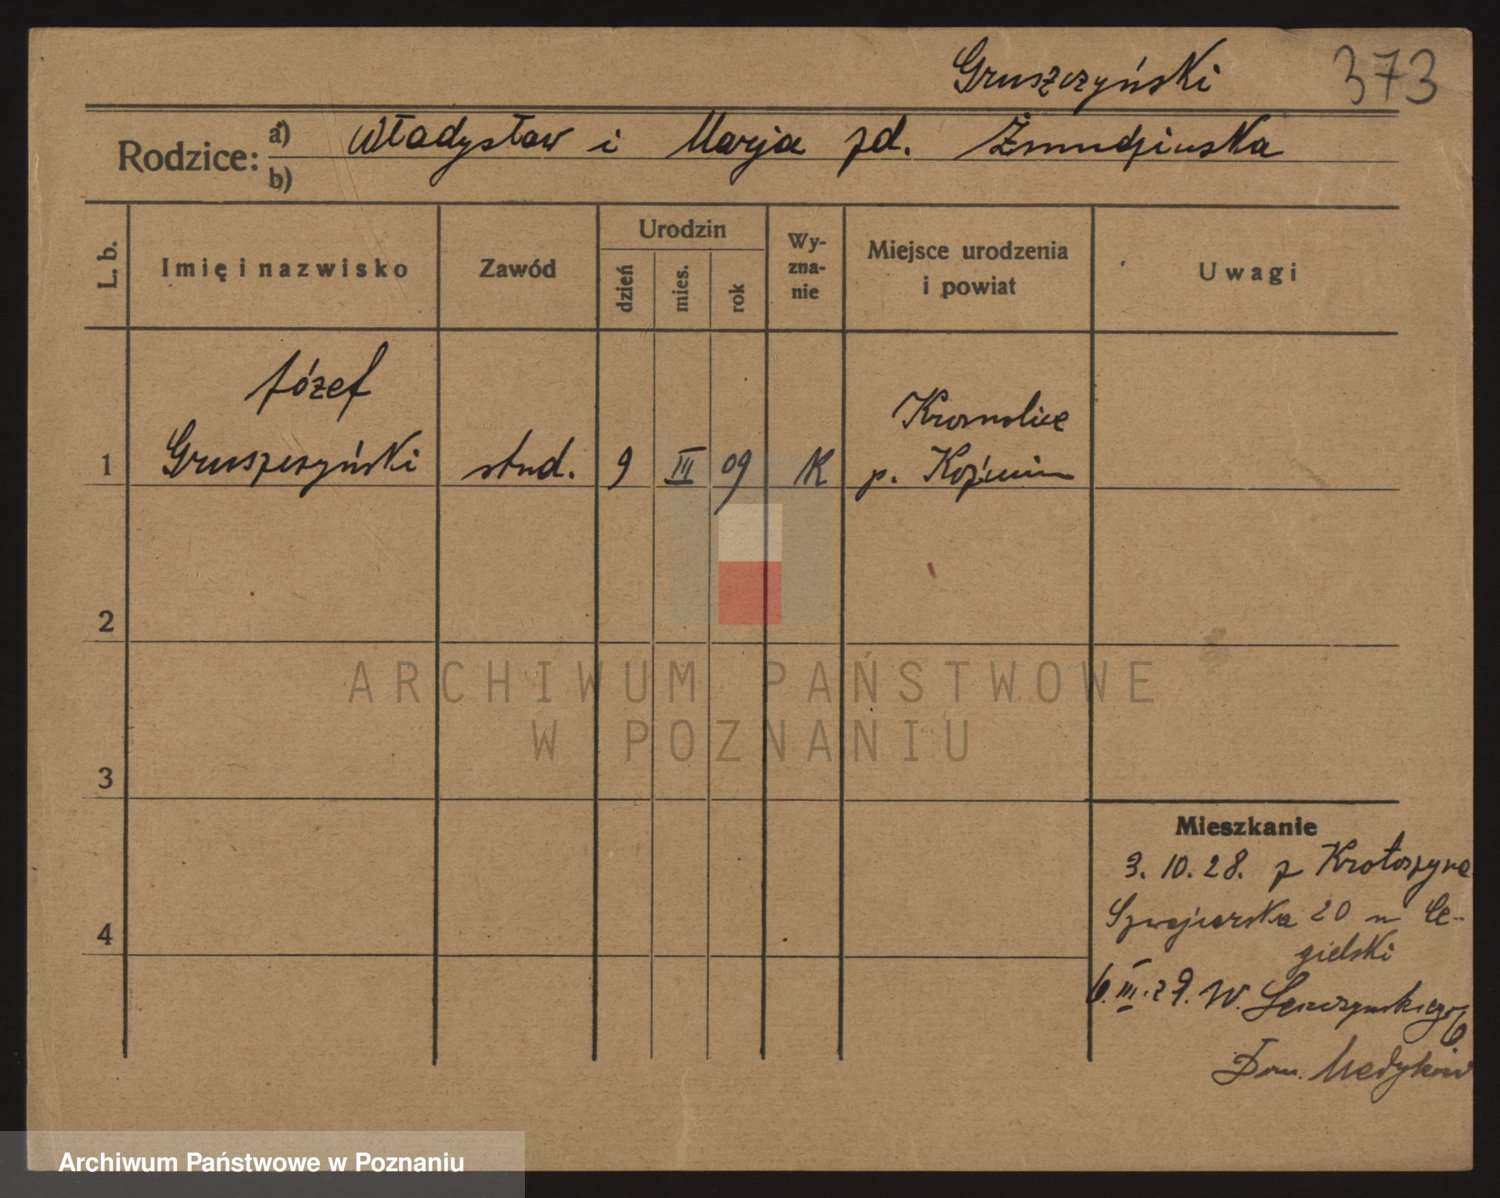 Gruszczyński 373
Rodzice: a) Władysław i Marja zd. Żmudzinska
b)
L. b. Imię i nazwisko Zawód Urodzin dzień mies. rok Wyznanie Miejsce urodzenia i powiat Uwagi
Józef
Krosnolice
1 Gruszczyński stud. 9 III 09 K p. Koźmin
2
ARCHIWUM PAŃSTWOWE
W POZNANIU
3
Mieszkanie
3. 10. 28. z Krotoszyna
Szwajcarska 20 u Ce-
4
gielski
6. III. 29. W. 6
Dom. Medyków
Archiwum Państwowe w Poznaniu